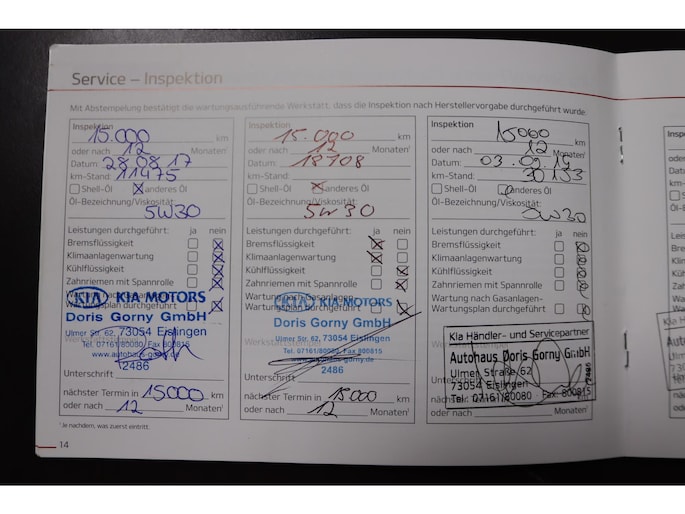 Service – Inspektion
Mit Abstempelung bestätigt die wartungsausführende Werkstatt, dass die Inspektion nach Herstellervorgabe durchgeführt wurde
Inspektion
15.000 km
oder nach 12 Monaten¹
Datum: 28.08.17
km-Stand: 11475
Shell-Öl anderes Öl
Öl-Bezeichnung/Viskosität:
5W30
Leistungen durchgeführt: ja nein
Bremsflüssigkeit
Klimaanlagenwartung
Kühlflüssigkeit
Zahnriemen mit Spannrolle
Wartungsplan durchgeführt
KIA KIA MOTORS
Doris Gorny GmbH
Ulmer Str. 62, 73054 Eislingen
Tel. 07161/80080, Fax 800815
www.autohaus-gorny.de
12486
Unterschrift
nächster Termin in 15000 km
oder nach 12 Monaten¹
Inspektion
15.000 km
oder nach 12 Monaten¹
Datum:
km-Stand:
Shell-Öl anderes Öl
Öl-Bezeichnung/Viskosität:
5W30
Leistungen durchgeführt: ja nein
Bremsflüssigkeit
Klimaanlagenwartung
Kühlflüssigkeit
Zahnriemen mit Spannrolle
Wartung nach Gasanlagen-
Wartungsplan durchgeführt
KIA KIA MOTORS
Doris Gorny GmbH
Ulmer Str. 62, 73054 Eislingen
Tel. 07161/80080, Fax 800815
2486
Unterschrift
nächster Termin in 15000 km
oder nach 12 Monaten¹
Inspektion
15000 km
oder nach 12 Monaten¹
Datum: 03.09.19
km-Stand: 30153
Shell-Öl anderes Öl
Öl-Bezeichnung/Viskosität:
5W30
Leistungen durchgeführt: ja nein
Bremsflüssigkeit
Klimaanlagenwartung
Kühlflüssigkeit
Zahnriemen mit Spannrolle
Wartung nach Gasanlagen-
Wartungsplan durchgeführt
Kia Händler- und Servicepartner
Autohaus Doris Gorny GmbH
Ulmer Straße 62
73054 Eislingen
Tel. 07161/80080 Fax: 800815
nächster Termin in km
oder nach Monaten¹
¹ Je nachdem, was zuerst eintritt.
14